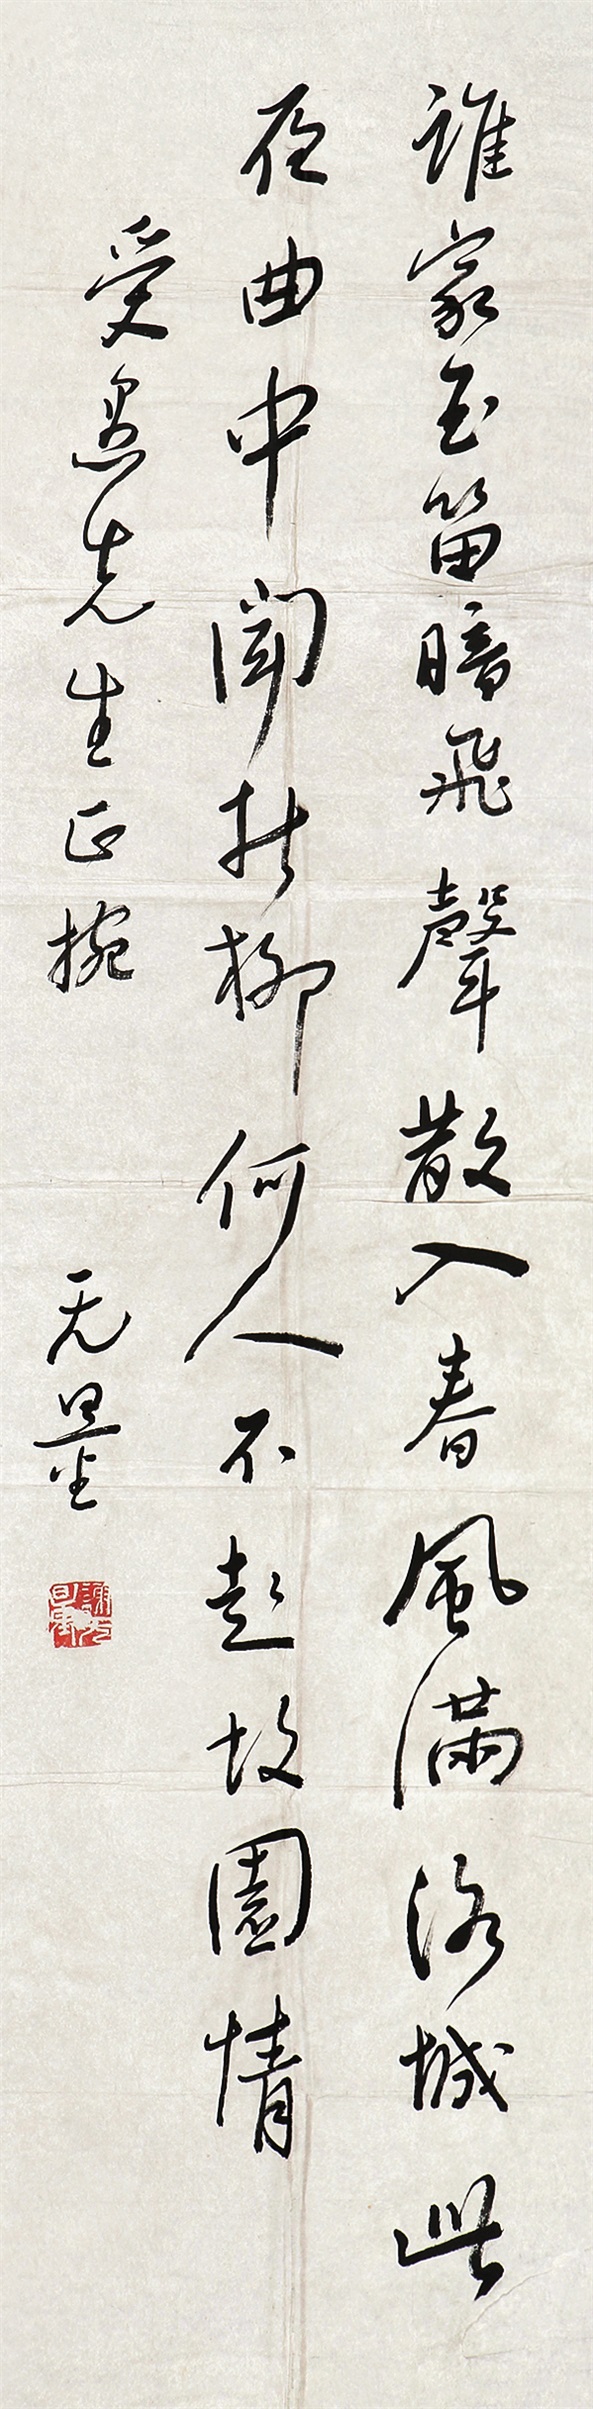 誰家玉笛暗飛聲散入春風滿洛城此
夜曲中聞折柳何人不起故園情
受愚先生正捥
无量
謝无量